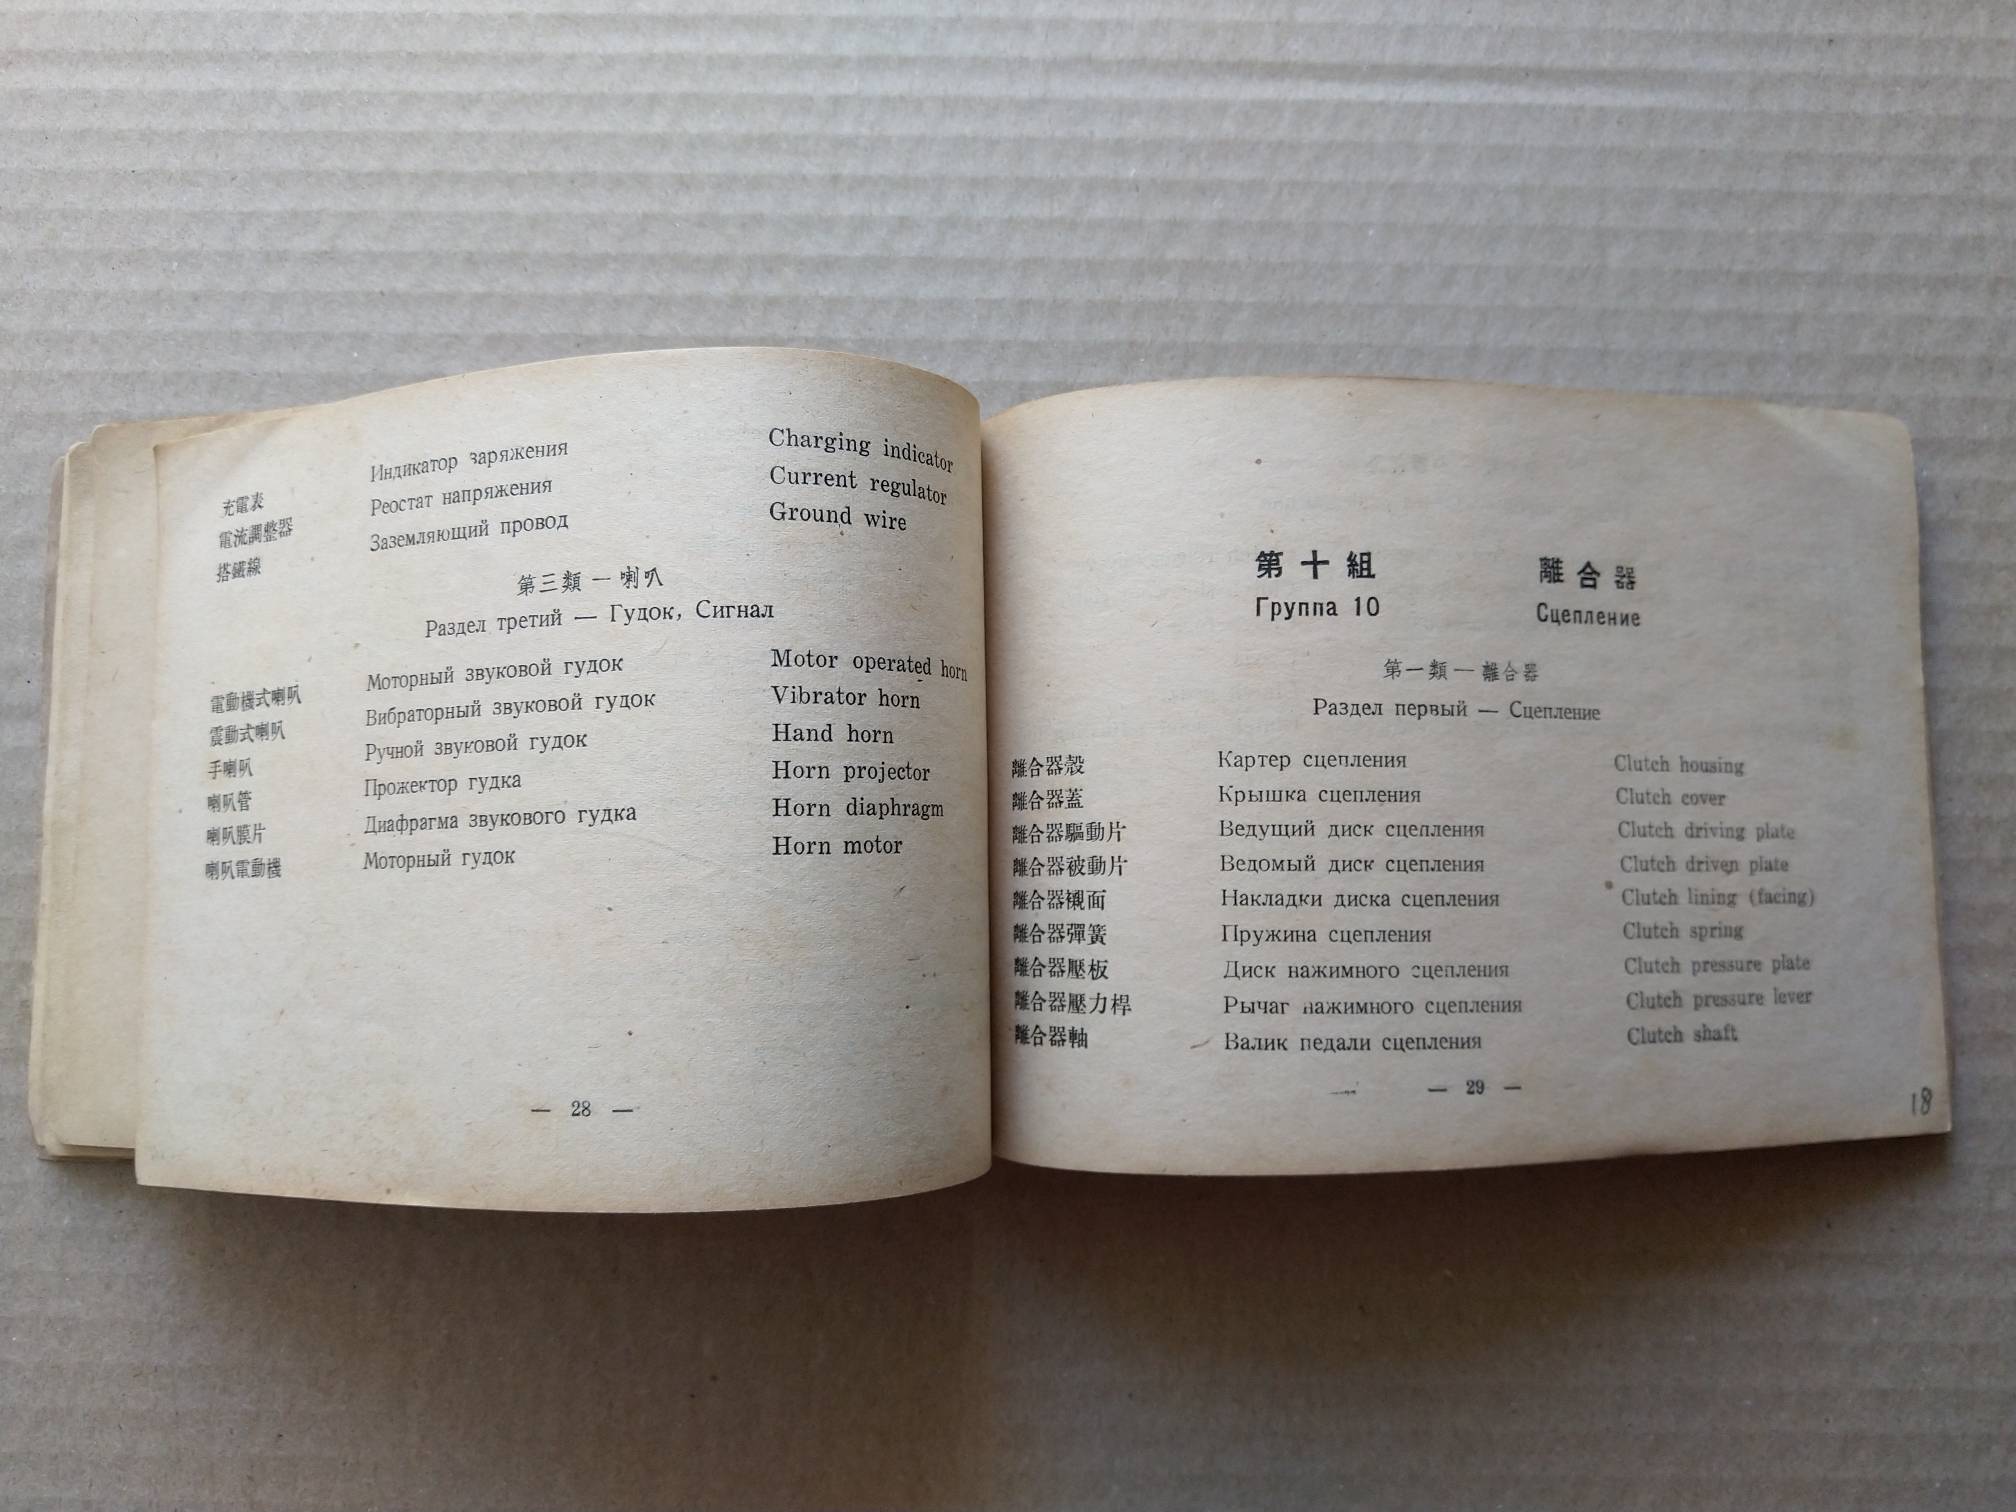 充電表 Индикатор заряжения Charging indicator
電流調整器 Реостат напряжения Current regulator
搭鐵線 Заземляющий провод Ground wire
第三類 — 喇叭
Раздел третий — Гудок, Сигнал
電動機式喇叭 Моторный звуковой гудок Motor operated horn
震動式喇叭 Вибраторный звуковой гудок Vibrator horn
手喇叭 Ручной звуковой гудок Hand horn
喇叭管 Прожектор гудка Horn projector
喇叭膜片 Диафрагма звукового гудка Horn diaphragm
喇叭電動機 Моторный гудок Horn motor
— 28 —
第十組 離合器
Группа 10 Сцепление
第一類 — 離合器
Раздел первый — Сцепление
離合器殼 Картер сцепления Clutch housing
離合器蓋 Крышка сцепления Clutch cover
離合器驅動片 Ведущий диск сцепления Clutch driving plate
離合器被動片 Ведомый диск сцепления Clutch driven plate
離合器襯面 Накладки диска сцепления Clutch lining (facing)
離合器彈簧 Пружина сцепления Clutch spring
離合器壓板 Диск нажимного сцепления Clutch pressure plate
離合器壓力桿 Рычаг нажимного сцепления Clutch pressure lever
離合器軸 Валик педали сцепления Clutch shaft
— 29 —
18